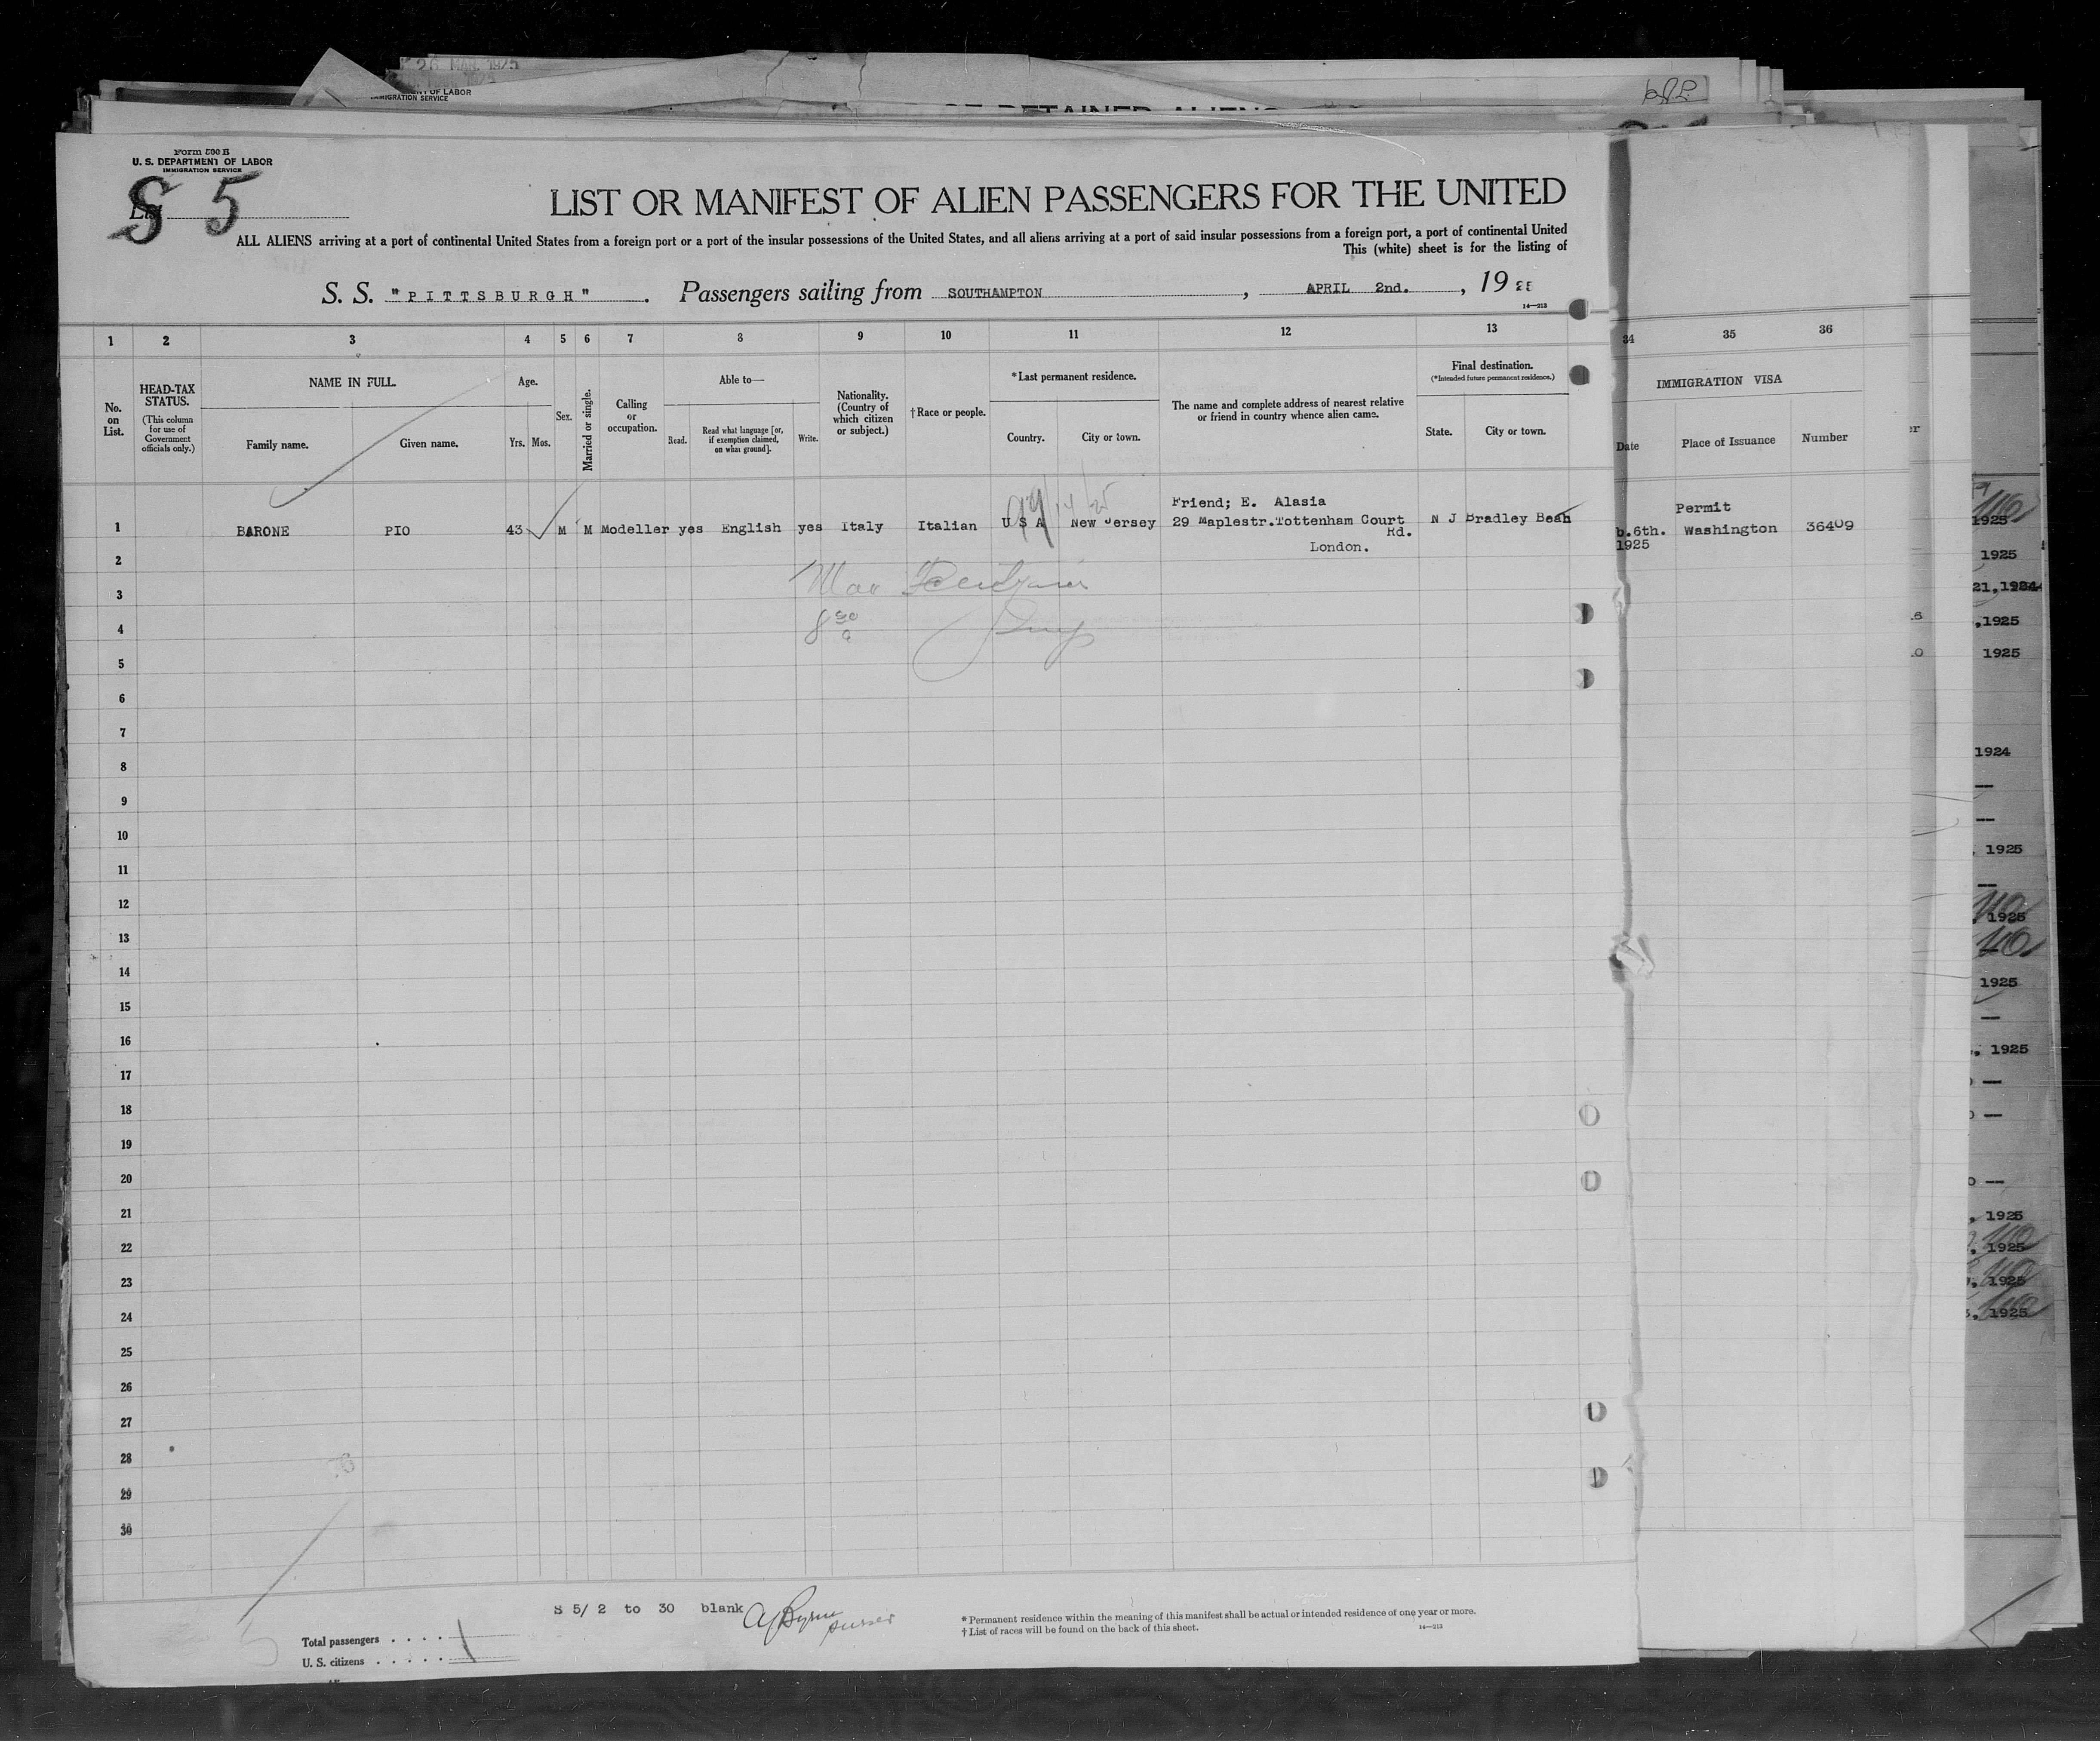 26 MAR. 1925
OF LABOR
IMMIGRATION SERVICE
Form 500 B
U. S. DEPARTMENT OF LABOR
IMMIGRATION SERVICE
List
S 5
LIST OR MANIFEST OF ALIEN PASSENGERS FOR THE UNITED
ALL ALIENS arriving at a port of continental United States from a foreign port or a port of the insular possessions of the United States, and all aliens arriving at a port of said insular possessions from a foreign port, a port of continental United
This (white) sheet is for the listing of
S. S. "PITTSBURGH" . Passengers sailing from SOUTHAMPTON , APRIL 2nd. , 19
14—213
1 2 3 4 5 6 7 8 9 10 11 12 13 34 35 36
No. on List.
HEAD-TAX STATUS.
(This column for use of Government officials only.)
NAME IN FULL.
Family name. Given name.
Age.
Yrs. Mos.
Sex.
Married or single.
Calling or occupation.
Able to—
Read. Read what language [or, if exemption claimed, on what ground]. Write.
Nationality. (Country of which citizen or subject.)
†Race or people.
*Last permanent residence.
Country. City or town.
The name and complete address of nearest relative or friend in country whence alien came.
Final destination.
(*Intended future permanent residence.)
State. City or town.
IMMIGRATION VISA
Date Place of Issuance Number
Friend; E. Alasia
1 BARONE PIO 43 M M Modeller yes English yes Italy Italian U S A New Jersey 29 Maplestr.Tottenham Court Rd. N J Bradley Beah
London.
Permit
b.6th. Washington 36409
1925
2
3
4
5
6
7
8
9
10
11
12
13
14
15
16
17
18
19
20
21
22
23
24
25
26
27
28
29
30
S 5/ 2 to 30 blank
purser
Total passengers . . . .
U. S. citizens . . . . .
* Permanent residence within the meaning of this manifest shall be actual or intended residence of one year or more.
† List of races will be found on the back of this sheet.
14—213
1925
1925
21,1924
,1925
1925
1924
, 1925
, 1925
1925
, 1925
, 1925
, 1925
, 1925
, 1925